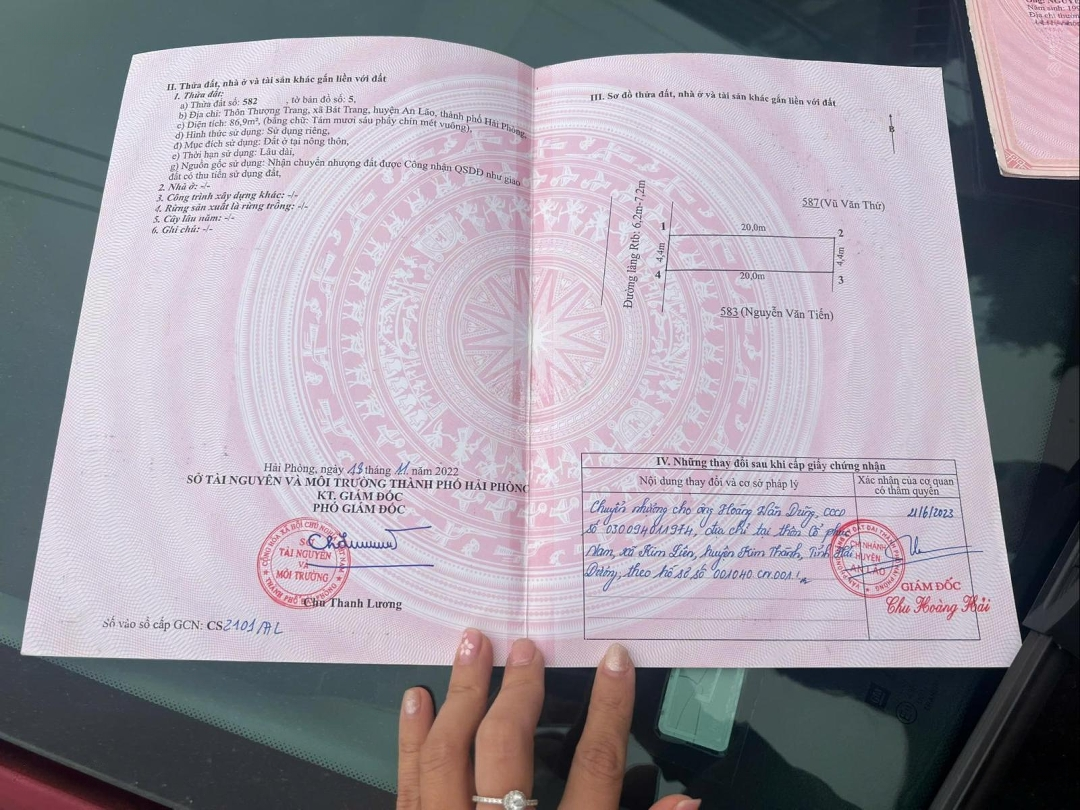 II. Thửa đất, nhà ở và tài sản khác gắn liền với đất
1. Thửa đất:
a) Thửa đất số: 582 , tờ bản đồ số: 5,
b) Địa chỉ: Thôn Thượng Trang, xã Bát Trang, huyện An Lão, thành phố Hải Phòng,
c) Diện tích: 86,9m², (bằng chữ: Tám mươi sáu phẩy chín mét vuông),
d) Hình thức sử dụng: Sử dụng riêng,
đ) Mục đích sử dụng: Đất ở tại nông thôn,
e) Thời hạn sử dụng: Lâu dài,
g) Nguồn gốc sử dụng: Nhận chuyển nhượng đất được Công nhận QSDĐ như giao
đất có thu tiền sử dụng đất,
2. Nhà ở: -/-
3. Công trình xây dựng khác: -/-
4. Rừng sản xuất là rừng trồng: -/-
5. Cây lâu năm: -/-
6. Ghi chú: -/-
Hải Phòng, ngày 13 tháng 11 năm 2022
SỞ TÀI NGUYÊN VÀ MÔI TRƯỜNG THÀNH PHỐ HẢI PHÒNG
KT. GIÁM ĐỐC
PHÓ GIÁM ĐỐC
CỘNG HÒA XÃ HỘI CHỦ NGHĨA VIỆT NAM
SỞ
TÀI NGUYÊN
VÀ
MÔI TRƯỜNG
THÀNH PHỐ HẢI PHÒNG
Chu Thanh Lương
Số vào sổ cấp GCN: CS2101/AL
III. Sơ đồ thửa đất, nhà ở và tài sản khác gắn liền với đất
B
587 (Vũ Văn Thứ)
Đường làng Rtb: 6,2m-7,2m
1
20,0m
2
4,4m
4,4m
4
20,0m
3
583 (Nguyễn Văn Tiến)
IV. Những thay đổi sau khi cấp giấy chứng nhận
Nội dung thay đổi và cơ sở pháp lý
Xác nhận của cơ quan
có thẩm quyền
Chuyển nhượng cho ông Hoàng Văn Dũng, CCCD
số 030094011974, địa chỉ tại thôn Cổ
Nam, xã Kim Liên, huyện Kim Thành, Tỉnh Hải
Dương, theo hồ sơ số 001040.CN.001.
21/6/2023
CHI NHÁNH
HUYỆN
AN LÃO
GIÁM ĐỐC
Chu Hoàng Hải